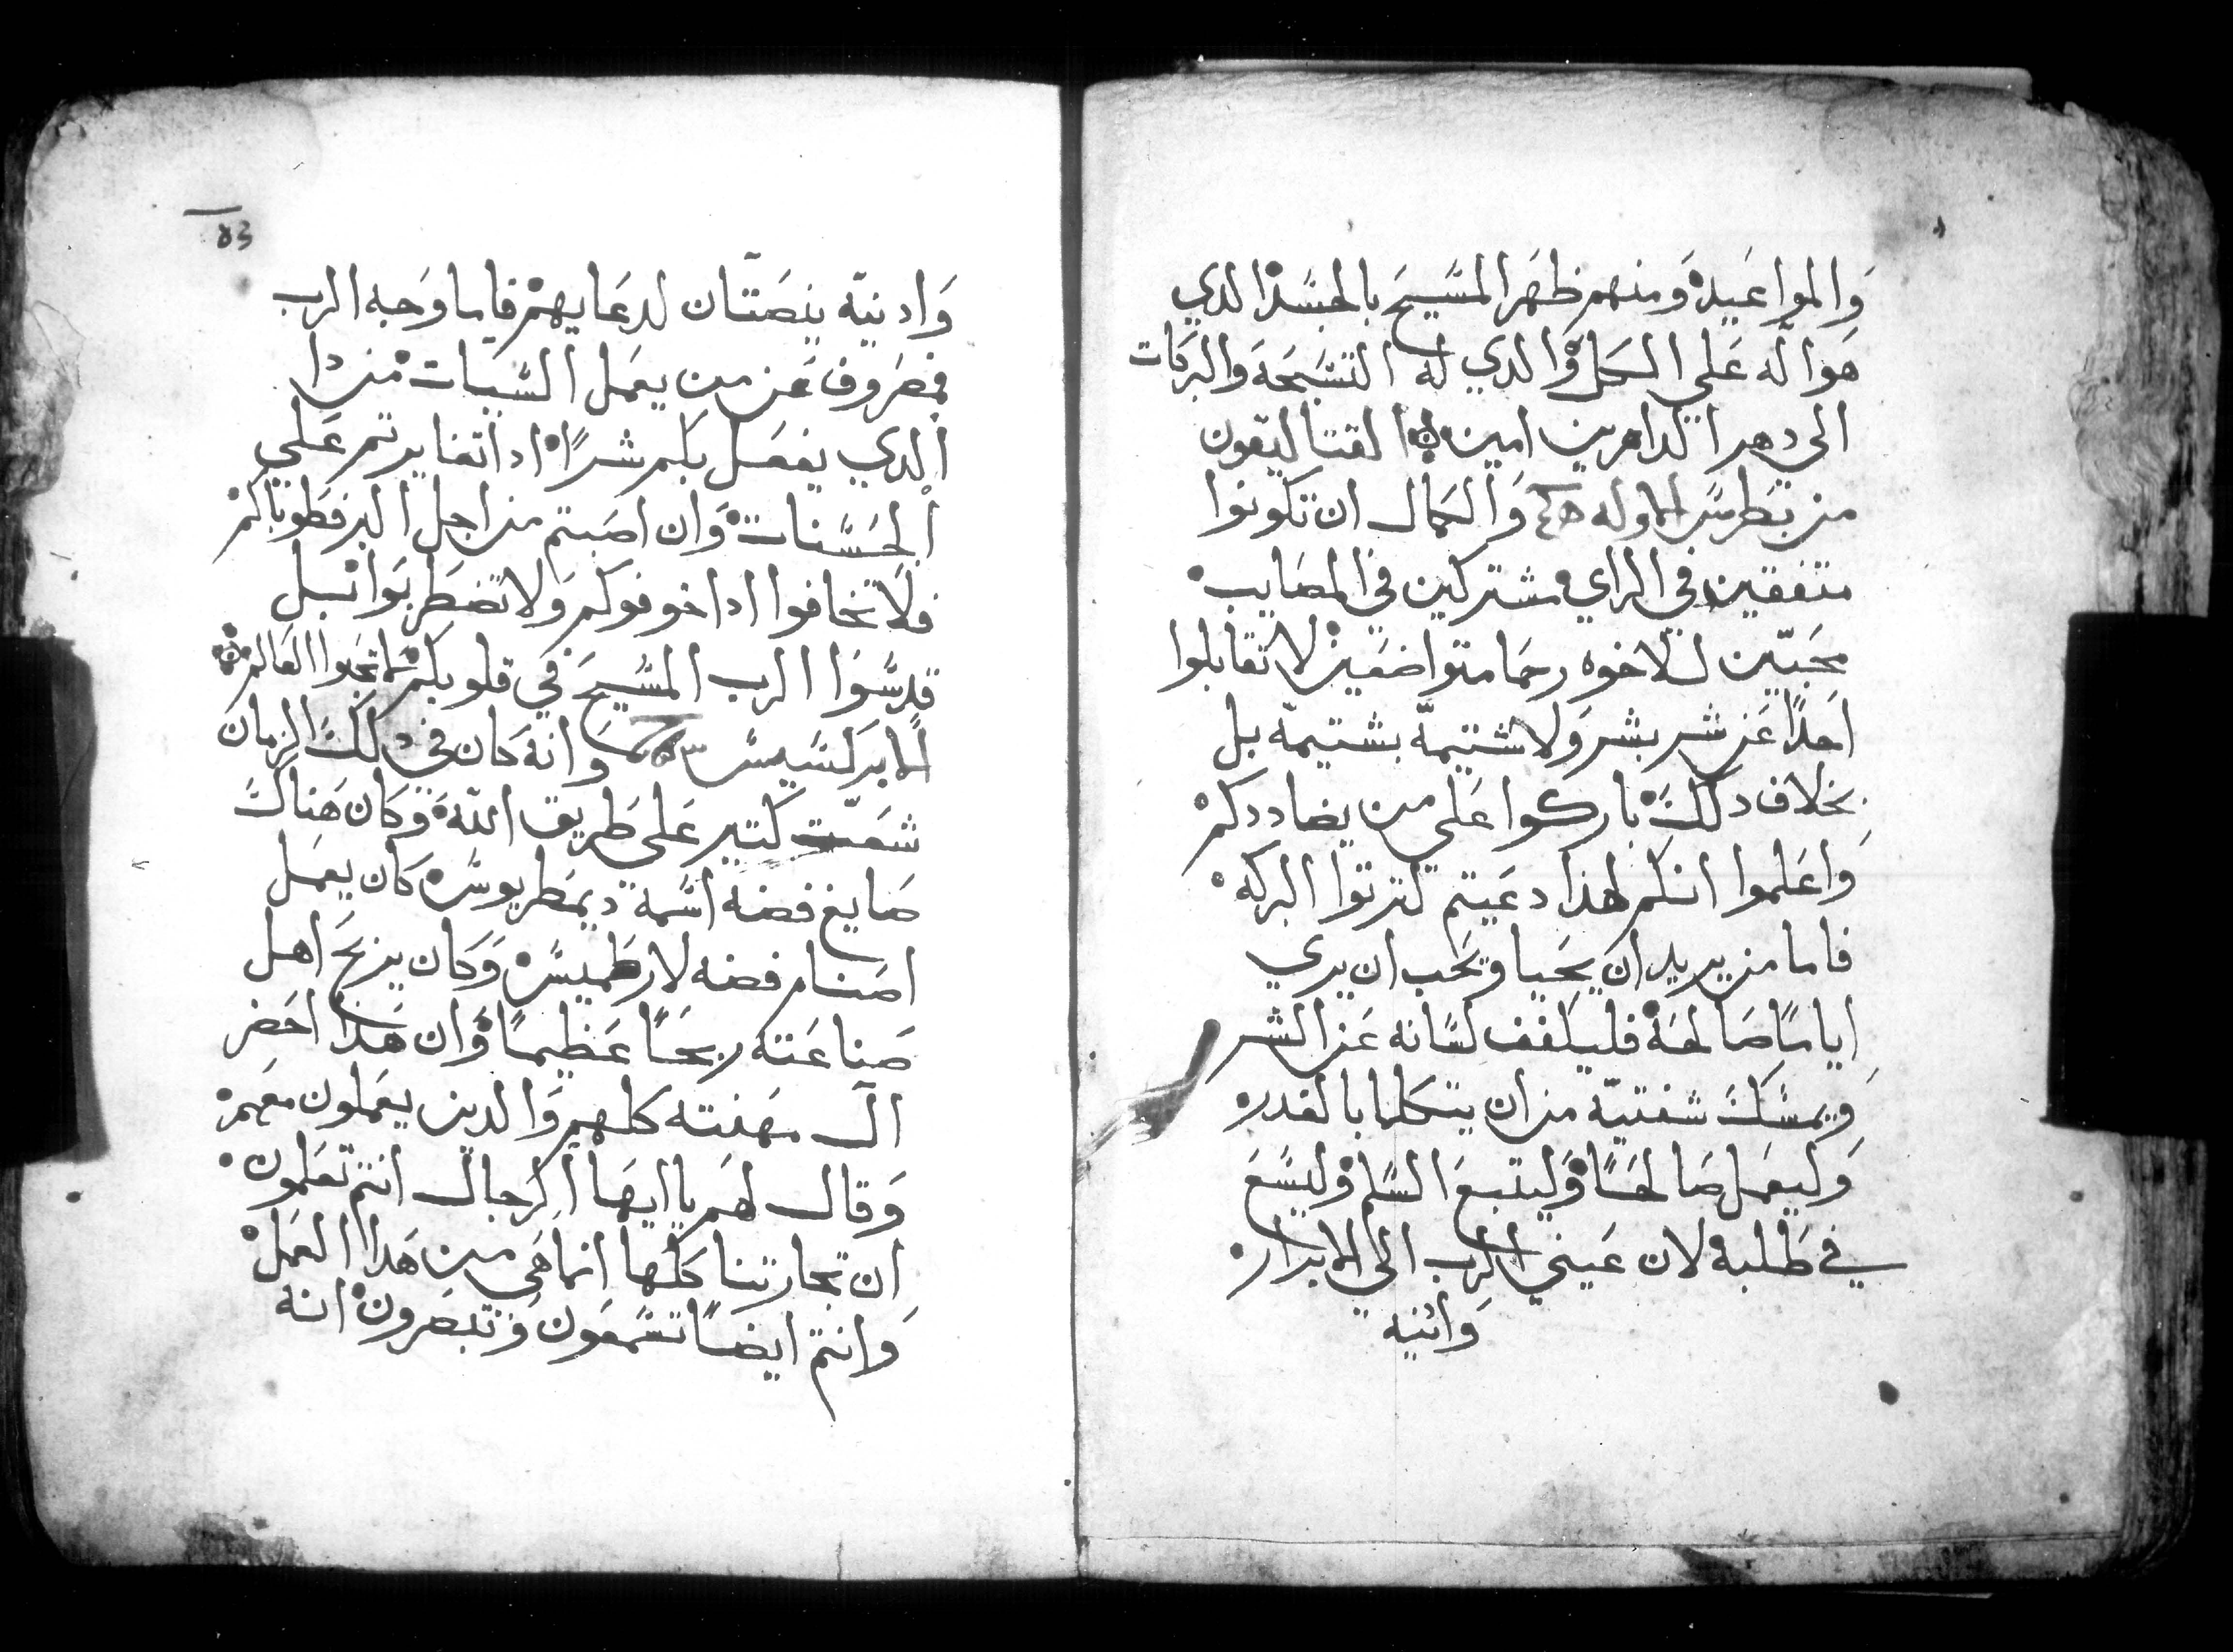 وَالمواعَيد وَمنهم ظهَر المسَّيحَ بالجسَّد الدي
هَو اله عَلي الكل وَالدي له التسَّبحَة والبركات
الي دهر الداهرين امين القتاليقون
من بطرسَّ الاوله وَالكمال ان تكونوا
متفقين في الراي مشتركين في المصَايب
محَبّين للاخوه رحَما متواضعَين لا تقابلوا
احَدًا عَن شر بشر وَلا شتيمة بشتيمة بل
بخلاف دلك باركوا عَلي من يضاددكم
وَاعَلموا انكم لهذا دعَيتم لترتوا البركه
فاما من يريد ان يحَيا ويحَب ان يري
اياما صَالحَة فليكفف لسَّانه عَن الشر
وَيمسَّك شفتيه من ان يتكلما بالغدر
وَليعَمل صَالحًا وَليتبع السَّلم وليسَّعَ
في طلبه لان عَيني الرب الي الابرار
وَادنيه
83
وَادنيه ينصَتان لدعَايهم فاما وَجه الرب
فمصَروف عَن من يعمَل السَّيات من دا
الدي يفعَل بكم شرًا اد اتغايرتم عَلي
الحَسَّنات وَان اصَبتم من اجل البر فطوباكم
فلا تخافوا ادا خوفوكم وَلا تضطربوا بل
قدسَّوا الرب المسَّيحَ في قلوبكم لا تحبوا العَالم
الابركسَّيسَّ وانه كان في دلك الزمان
شعَت كتير عَلي طريق الله وكان هَناك
صَايغ فضه اسَّمه ديمطريوسَّ كان يعمَل
اصَنام فضه لارطميسَّ وَكان يربحَ اهل
صَناعَته ربحًا عَظيمًا وَان هَدا احَضر
ال مهَنته كلهم وَالدين يعَملون معَهم
وَقال لهَم يا ايهَا الرجال انتم تعَلمون
ان تجارتنا كلها انما هَي من هَدا العَمل
وَانتم ايضًا تسَّمعَون وَتبصَرون انه